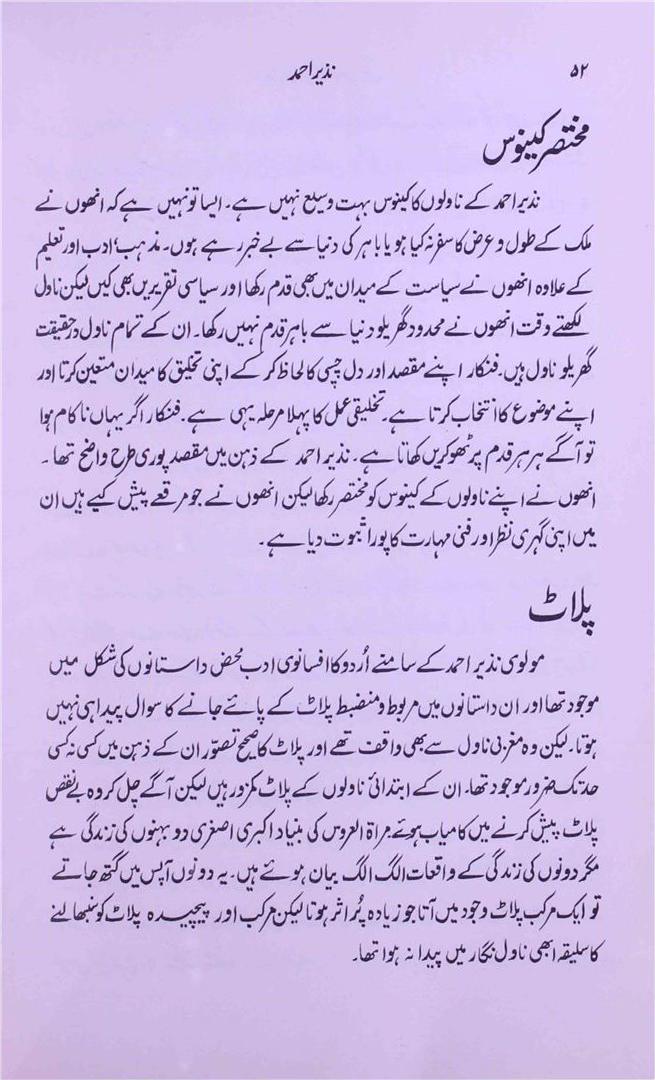 ۵۲ نذیر احمد
مختصر کینوس
نذیر احمد کے ناولوں کا کینوس بہت وسیع نہیں ہے۔ ایسا تو نہیں ہے کہ انھوں نے
ملک کے طول و عرض کا سفر نہ کیا ہو یا باہر کی دنیا سے بے خبر رہے ہوں۔ مذہب، ادب اور تعلیم
کے علاوہ انھوں نے سیاست کے میدان میں بھی قدم رکھا اور سیاسی تقریریں بھی کیں لیکن ناول
لکھتے وقت انھوں نے محدود گھریلو دنیا سے باہر قدم نہیں رکھا۔ ان کے تمام ناول درحقیقت
گھریلو ناول ہیں۔ فنکار اپنے مقصد اور دل چسپی کا لحاظ کر کے اپنی تخلیق کا میدان متعین کرتا اور
اپنے موضوع کا انتخاب کرتا ہے۔ تخلیقی عمل کا پہلا مرحلہ یہی ہے۔ فنکار اگر یہاں ناکام ہوا
تو آگے ہر ہر قدم پر ٹھوکریں کھاتا ہے۔ نذیر احمد کے ذہن میں مقصد پوری طرح واضح تھا۔
انھوں نے اپنے ناولوں کے کینوس کو مختصر رکھا لیکن انھوں نے جو مرقعے پیش کیے ہیں ان
میں اپنی گہری نظر اور فنی مہارت کا پورا ثبوت دیا ہے۔
پلاٹ
مولوی نذیر احمد کے سامنے اُردو کا افسانوی ادب محض داستانوں کی شکل میں
موجود تھا اور ان داستانوں میں مربوط و منضبط پلاٹ کے پائے جانے کا سوال پیدا ہی نہیں
ہوتا۔ لیکن وہ مغربی ناول سے بھی واقف تھے اور پلاٹ کا صحیح تصوّر ان کے ذہن میں کسی نہ کسی
حد تک ضرور موجود تھا۔ ان کے ابتدائی ناولوں کے پلاٹ کمزور ہیں لیکن آگے چل کر وہ بے نقص
پلاٹ پیش کرنے میں کامیاب ہوئے۔ مراۃ العروس کی بنیاد اکبری اصغری دو بہنوں کی زندگی ہے
مگر دونوں کی زندگی کے واقعات الگ الگ بیان ہوئے ہیں۔ یہ دونوں آپس میں گتھ جاتے
تو ایک مرکب پلاٹ وجود میں آتا جو زیادہ پُر اثر ہوتا لیکن مرکب اور پیچیدہ پلاٹ کو سنبھالنے
کا سلیقہ ابھی ناول نگار میں پیدا نہ ہوا تھا۔